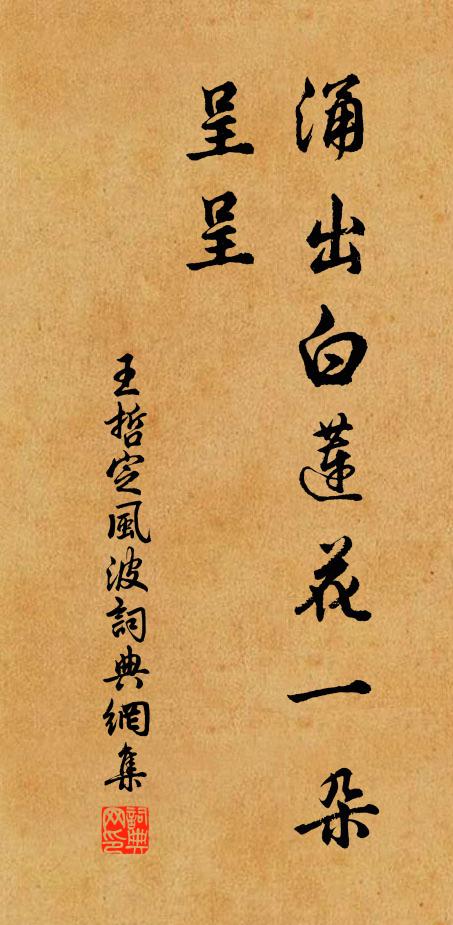 涌出白蓮花一朵
呈呈
王哲定風波詞典網集
詞典网印